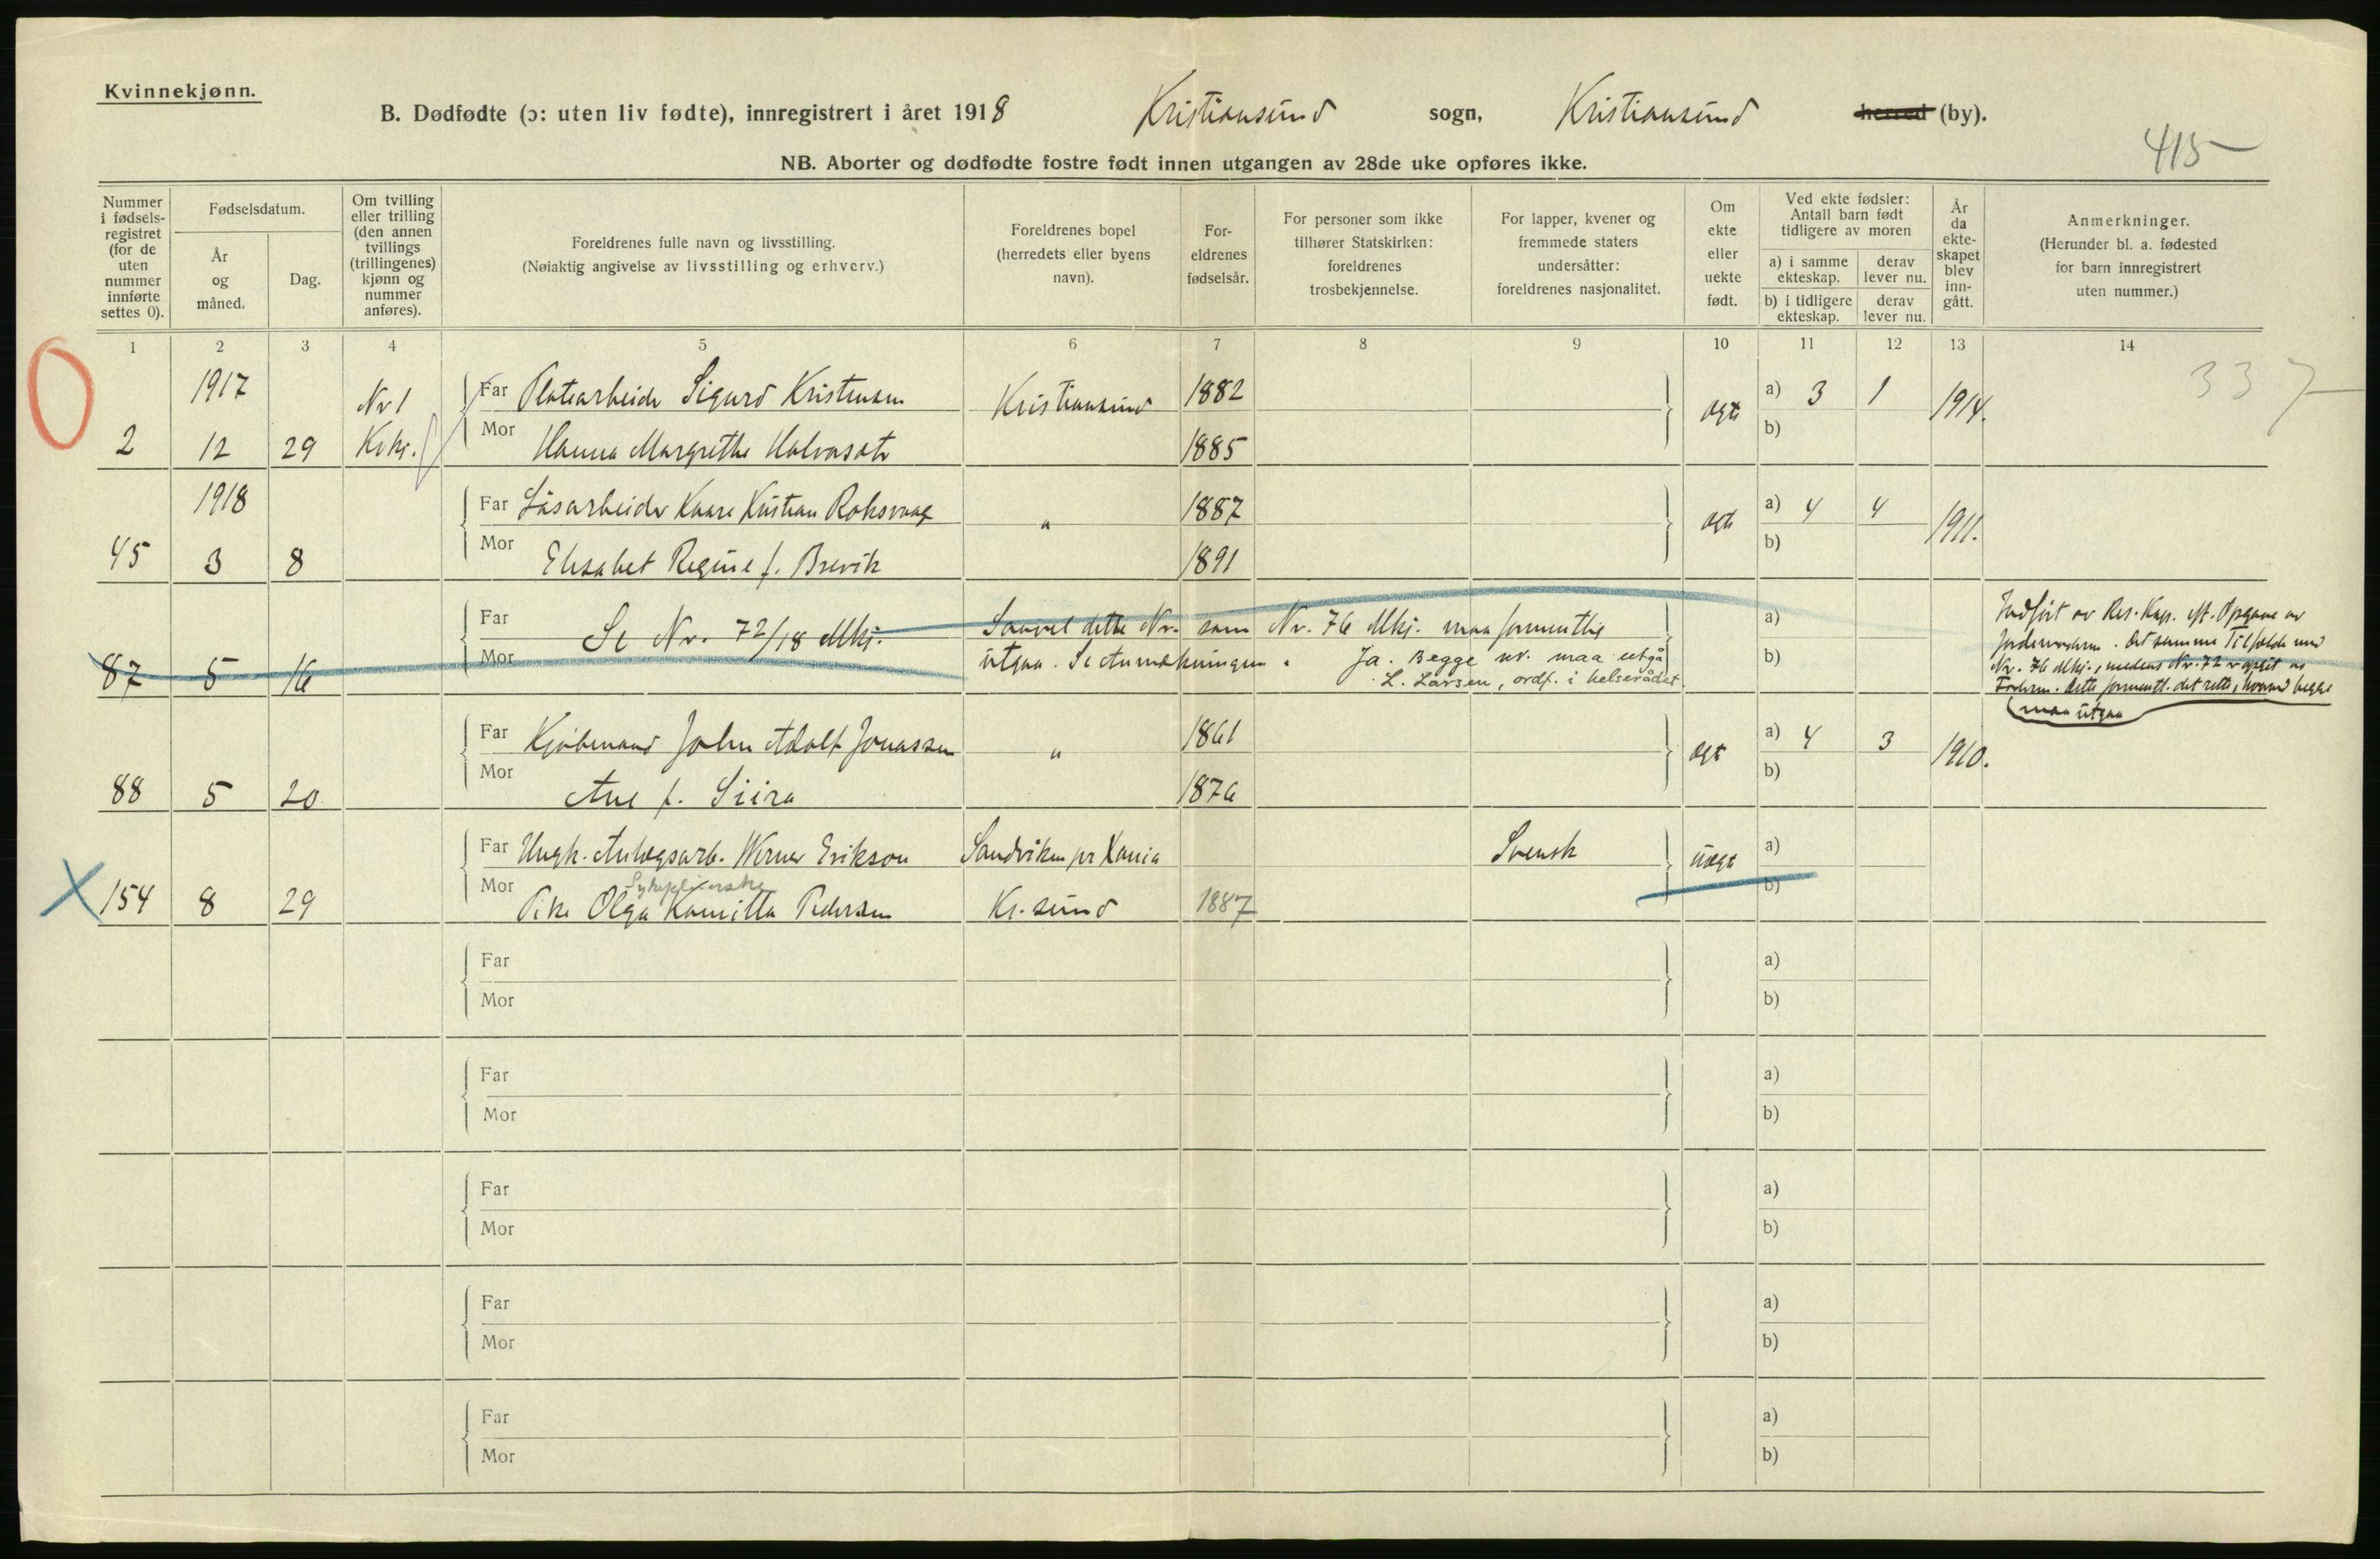 Kvinnekjønn.
B. Dødfødte (ɔ: uten liv fødte), innregistrert i året 1918 Kristiansund sogn, Kristiansund herred (by).
415
NB. Aborter og dødfødte fostre født innen utgangen av 28de uke opføres ikke.
Nummer i fødsels-registret (for de uten nummer innførte settes 0).
Fødselsdatum.
År og måned.
Dag.
Om tvilling eller trilling (den annen tvillings (trillingenes) kjønn og nummer anføres).
Foreldrenes fulle navn og livsstilling.
(Nøiaktig angivelse av livsstilling og erhverv.)
Foreldrenes bopel (herredets eller byens navn).
For-eldrenes fødselsår.
For personer som ikke tilhører Statskirken: foreldrenes trosbekjennelse.
For lapper, kvener og fremmede staters undersåtter: foreldrenes nasjonalitet.
Om ekte eller uekte født.
Ved ekte fødsler: Antall barn født tidligere av moren
a) i samme ekteskap.
derav lever nu.
b) i tidligere ekteskap.
derav lever nu.
År da ekte-skapet blev inn-gått.
Anmerkninger.
(Herunder bl. a. fødested for barn innregistrert uten nummer.)
1 2 3 4 5 6 7 8 9 10 11 12 13 14
337
1917 Nr 1 Far Sigurd Kristensen Kristiansund 1882 ogte a) 3 1 1914.
2 12 29 Kvkj. Mor Hanna Margrethe 1885 b)
1918 Far Kaare Kristian Roksvaag " 1887 ogte a) 4 4 1911.
45 3 8 Mor Elisabet Regine f. Brevik 1891 b)
Far Se Nr. 72/18 Mkj. Saavel dette Nr. som Nr. 76 Mkj. maa formentlig a)
87 5 16 Mor utgaa. Se Anmerkningen. Ja. Begge nr. maa utgå b)
L. Larsen, ordf. i helserådet
Indført av Res. Kap. eft. Opgave av
Jordemoderen. Det samme Tilfælde med
Nr. 76 Mkj., medens Nr. 72 er
dette formentl. det rette, begge
maa utgaa
Far Kjøbmand John Adolf Jonassen " 1861 ogt a) 4 3 1910.
88 5 20 Mor Ane f. Siira 1876 b)
Far Ungk. Anlægsarb. Werner Erikson Sandviken pr Xania Svensk uogt a)
Sykepleierske
154 8 29 Mor Pike Olga Kamilla Pedersen Kr.sund 1887 b)
Far a)
Mor b)
Far a)
Mor b)
Far a)
Mor b)
Far a)
Mor b)
Far a)
Mor b)